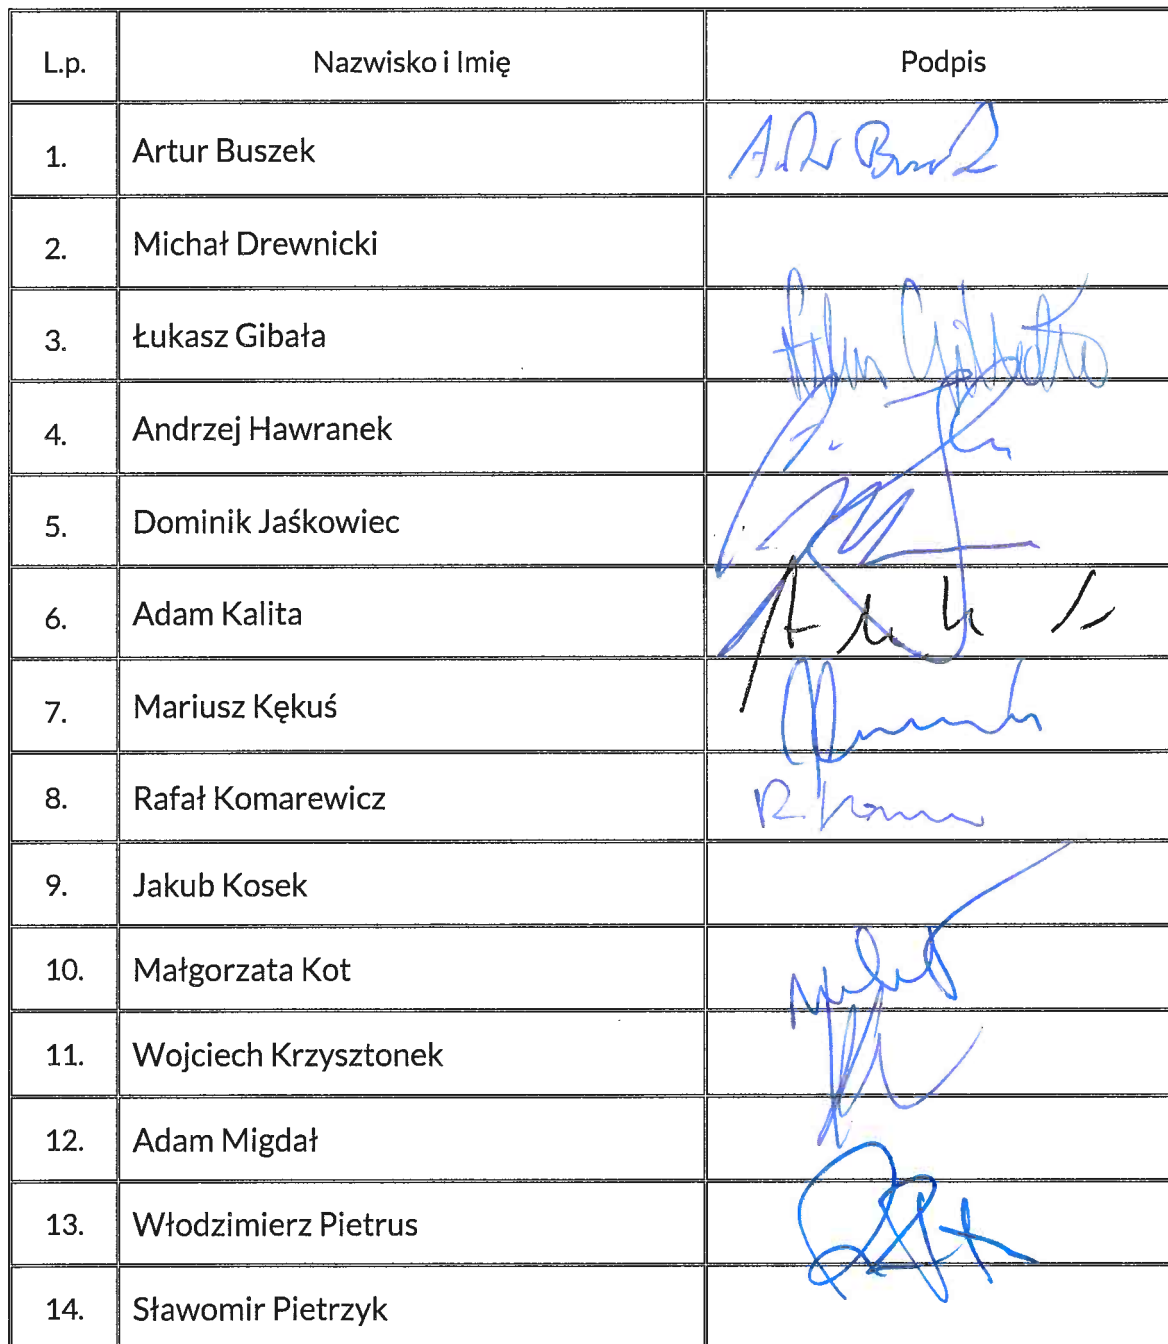 L.p. Nazwisko i Imię Podpis
1. Artur Buszek
2. Michał Drewnicki
3. Łukasz Gibała
4. Andrzej Hawranek
5. Dominik Jaśkowiec
6. Adam Kalita
7. Mariusz Kękuś
8. Rafał Komarewicz
9. Jakub Kosek
10. Małgorzata Kot
11. Wojciech Krzysztonek
12. Adam Migdał
13. Włodzimierz Pietrus
14. Sławomir Pietrzyk